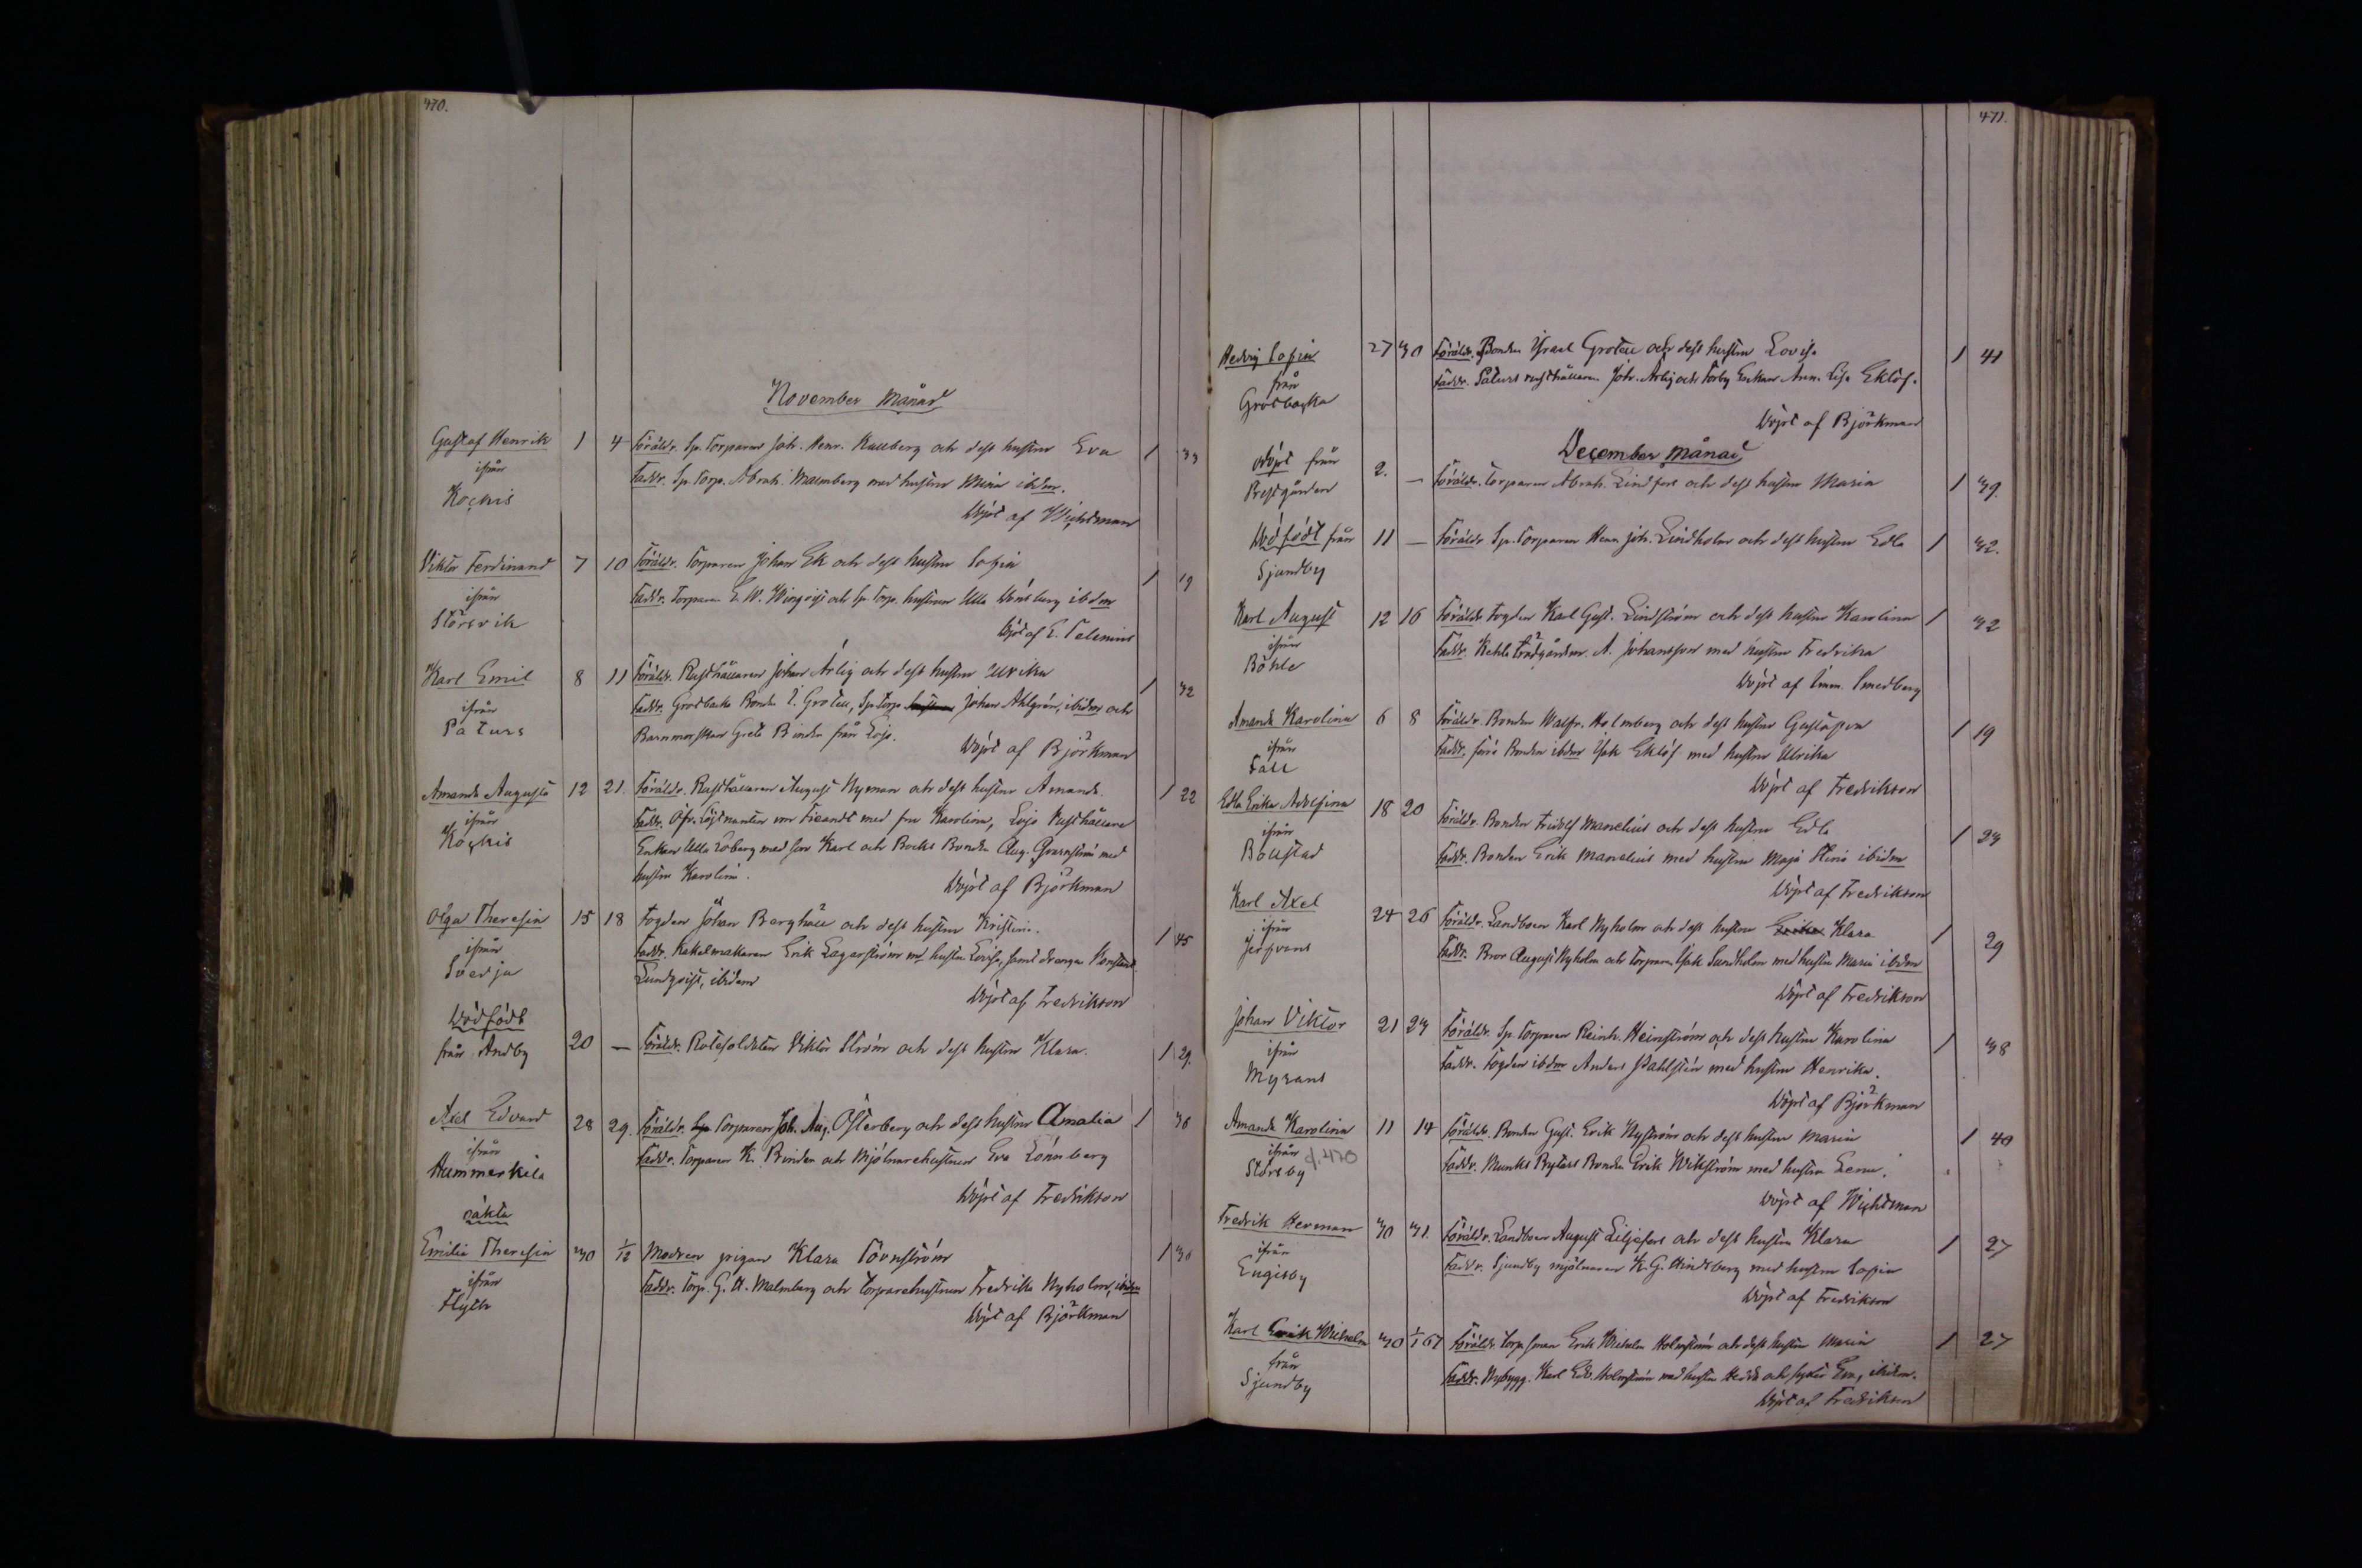 470.
November Månad
Gustaf Henrik 1 4 Föräldr. Sp. Torparen Joh. Henr. Kullberg och dess hustru Eva 1 33
ifrån
Faddr. Sp. Torp. Abrah. Malmberg med hustru Mina ibdm.
Kockis
Döpt af Wichtman
Viktor Ferdinand 7 10 Föräldr. Torparen Johan Ek och dess hustru Sofia 1 19
ifrån
Faddr. Torparen E. W. Winqvist och Sp. Torp. hustrun Ulla ibdm
Störsvik
Döpt af E. Telenius
Karl Emil 8 11 Föräldr. Rusthållaren Johan Ärlig och dess hustru Ulrika 1 32
ifrån
Faddr. Grotbacka Bonden I. Grotell, Sp Torp. Johan Ahlgrén, ibidm och
Påturs
Barnmorskan Greta Binder från Lojo.
Döpt af Björkman
Amanda Augusta 12 21. Föräldr. Rusthållaren August Nyman och dess hustru Amanda. 1 22
ifrån
Faddr. Öfv. Löjtnanten von Fieandt med fru Karolina, Lojo Rusthållare
Kockis
Enkan Ulla med son Karl och Backs Bonden Aug. Granström med
hustru Karolina.
Döpt af Björkman
Olga Theresia 15 18 Fogden Johan Berghäll och dess hustru Kristina. 1 45
ifrån
Faddr. Kakelmakaren Erik Lagerström md hustru Lovisa, samt drengen Konstant
Svedja
Lundqvist, ibidem
Döpt af Fredrikson
Dödfödt
från Andby 20 — Föräldr. Rotesoldaten Viktor Ström och dess hustru Klara. 1 29.
Axel Edvard 28 29. Föräldr. Torparen Joh. Aug. Österberg och dess hustru Amalia 1 36
ifrån
Faddr. Torparen K. Binder och Mjölnarehustrun Eva Lönnberg
Hummerkila
Döpt af Fredrikson
oäkta
Emilia Theresia 30 1/12 Modren pigan Klara Törnström 1 30
ifrån
Faddr. Torp. G. A. Malmberg och Torparehustrun Fredrika Nyholm, ibidm
Flyth
Döpt af Björkman
471.
Hedvig Sofia 27 30 Föräldr. Bonden Israel Grotell och dess hustru Lovisa 1 41
från
Faddr. Påturs rusthållaren Joh. Ärlig och Torby Enkan Anna Lisa Eklöf.
Grotbacka
Döpt af Björkman
December Månad
Odöpt från 2. — Föräldr. Torparen Abrah. Lindfors och dess hustru Maria 1 39.
Prestgården
Dödfödt från 11 — Föräldr. Sp. Torparen Henr. Joh. Lindholm och dess hustru Edla 1 32.
Sjundby
Karl August 12 16 Föräldr. Fogden Karl Gust. Lindström och dess hustru Karolina 1 32
ifrån
Faddr. Trädgårdsm. A. Johansson med hustru Fredrika
Böhle
Döpt af Imm. Smedberg
Amanda Karolina 6 8 Föräldr. Bonden Walfr. Holmberg och dess hustru Gustafva 1 19
ifrån
Faddr. förre Bonden ibdm Isak Eklöf med hustru Ulrika
Fall
Döpt af Fredrikson
Edla Erika Adolfina 18 20 Föräldr. Bonden Fridolf Manelius och dess hustru Edla 1 23
ifrån
Faddr. Bonden Erik Manelius med hustru Maja Stina ibidm
Bollstad
Döpt af Fredrikson
Karl Axel 24 26 Föräldr. Landboen Karl Nyholm och dess hustru Klara 1 29
ifrån
Faddr. Bror August Nyholm och Torparen Isak Sundholm med hustru Maria ibidm
Döpt af Fredrikson
Johan Viktor 21 23 Föräldr. Sp. Torparen Reinh. Heinström och dess hustru Karolina 1 38
ifrån
Faddr. Fogden ibdm Anders Dahlstén med hustru Henrika.
Myrans
Döpt af Björkman
Amanda Karolina 11 14 Föräldr. Bonden Gust. Erik Nyström och dess hustru Maria 1 40
ifrån
Faddr. Munks Bonden Erik Wikström med hustru Lena.
Störsby
Döpt af Wichtman
Fredrik Herman 30 31. Föräldr. Landboen August Liljefors och dess hustru Klara 1 27
ifrån
Faddr. Sjundby mjölnaren K. G. Hindsberg med hustru Sofia
Engisby
Döpt af Fredrikson
Karl Erik Wilhelm 30 1/1 67 Föräldr. Erik Wilhelm Holmström och dess hustru Maria 1 27
från
Faddr. Nybygg. Karl Edv. Holmström med hustru Hedda och syster Eva, ibidm.
Sjundby
Döpt af Fredrikson